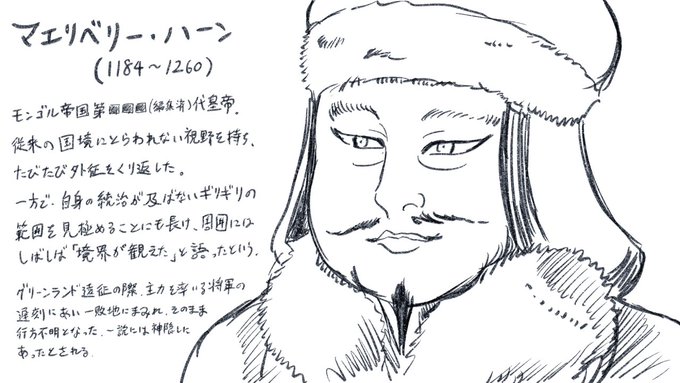 マエリベリー・ハーン
(1184～1260)
モンゴル帝国第(編集済)代皇帝。
従来の国境にとらわれない視野を持ち、
たびたび外征をくり返した。
一方で、自身の統治が及ばないギリギリの
範囲を見極めることにも長け、周囲には
しばしば「境界が観えた」と語ったという。
グリーンランド遠征の際、主力を率いる将軍の
遅刻にあい一敗地にまみれ、そのまま
行方不明となった。一説には神隠しに
あったとされる。